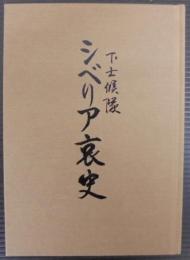 下士候隊
シベリア哀史